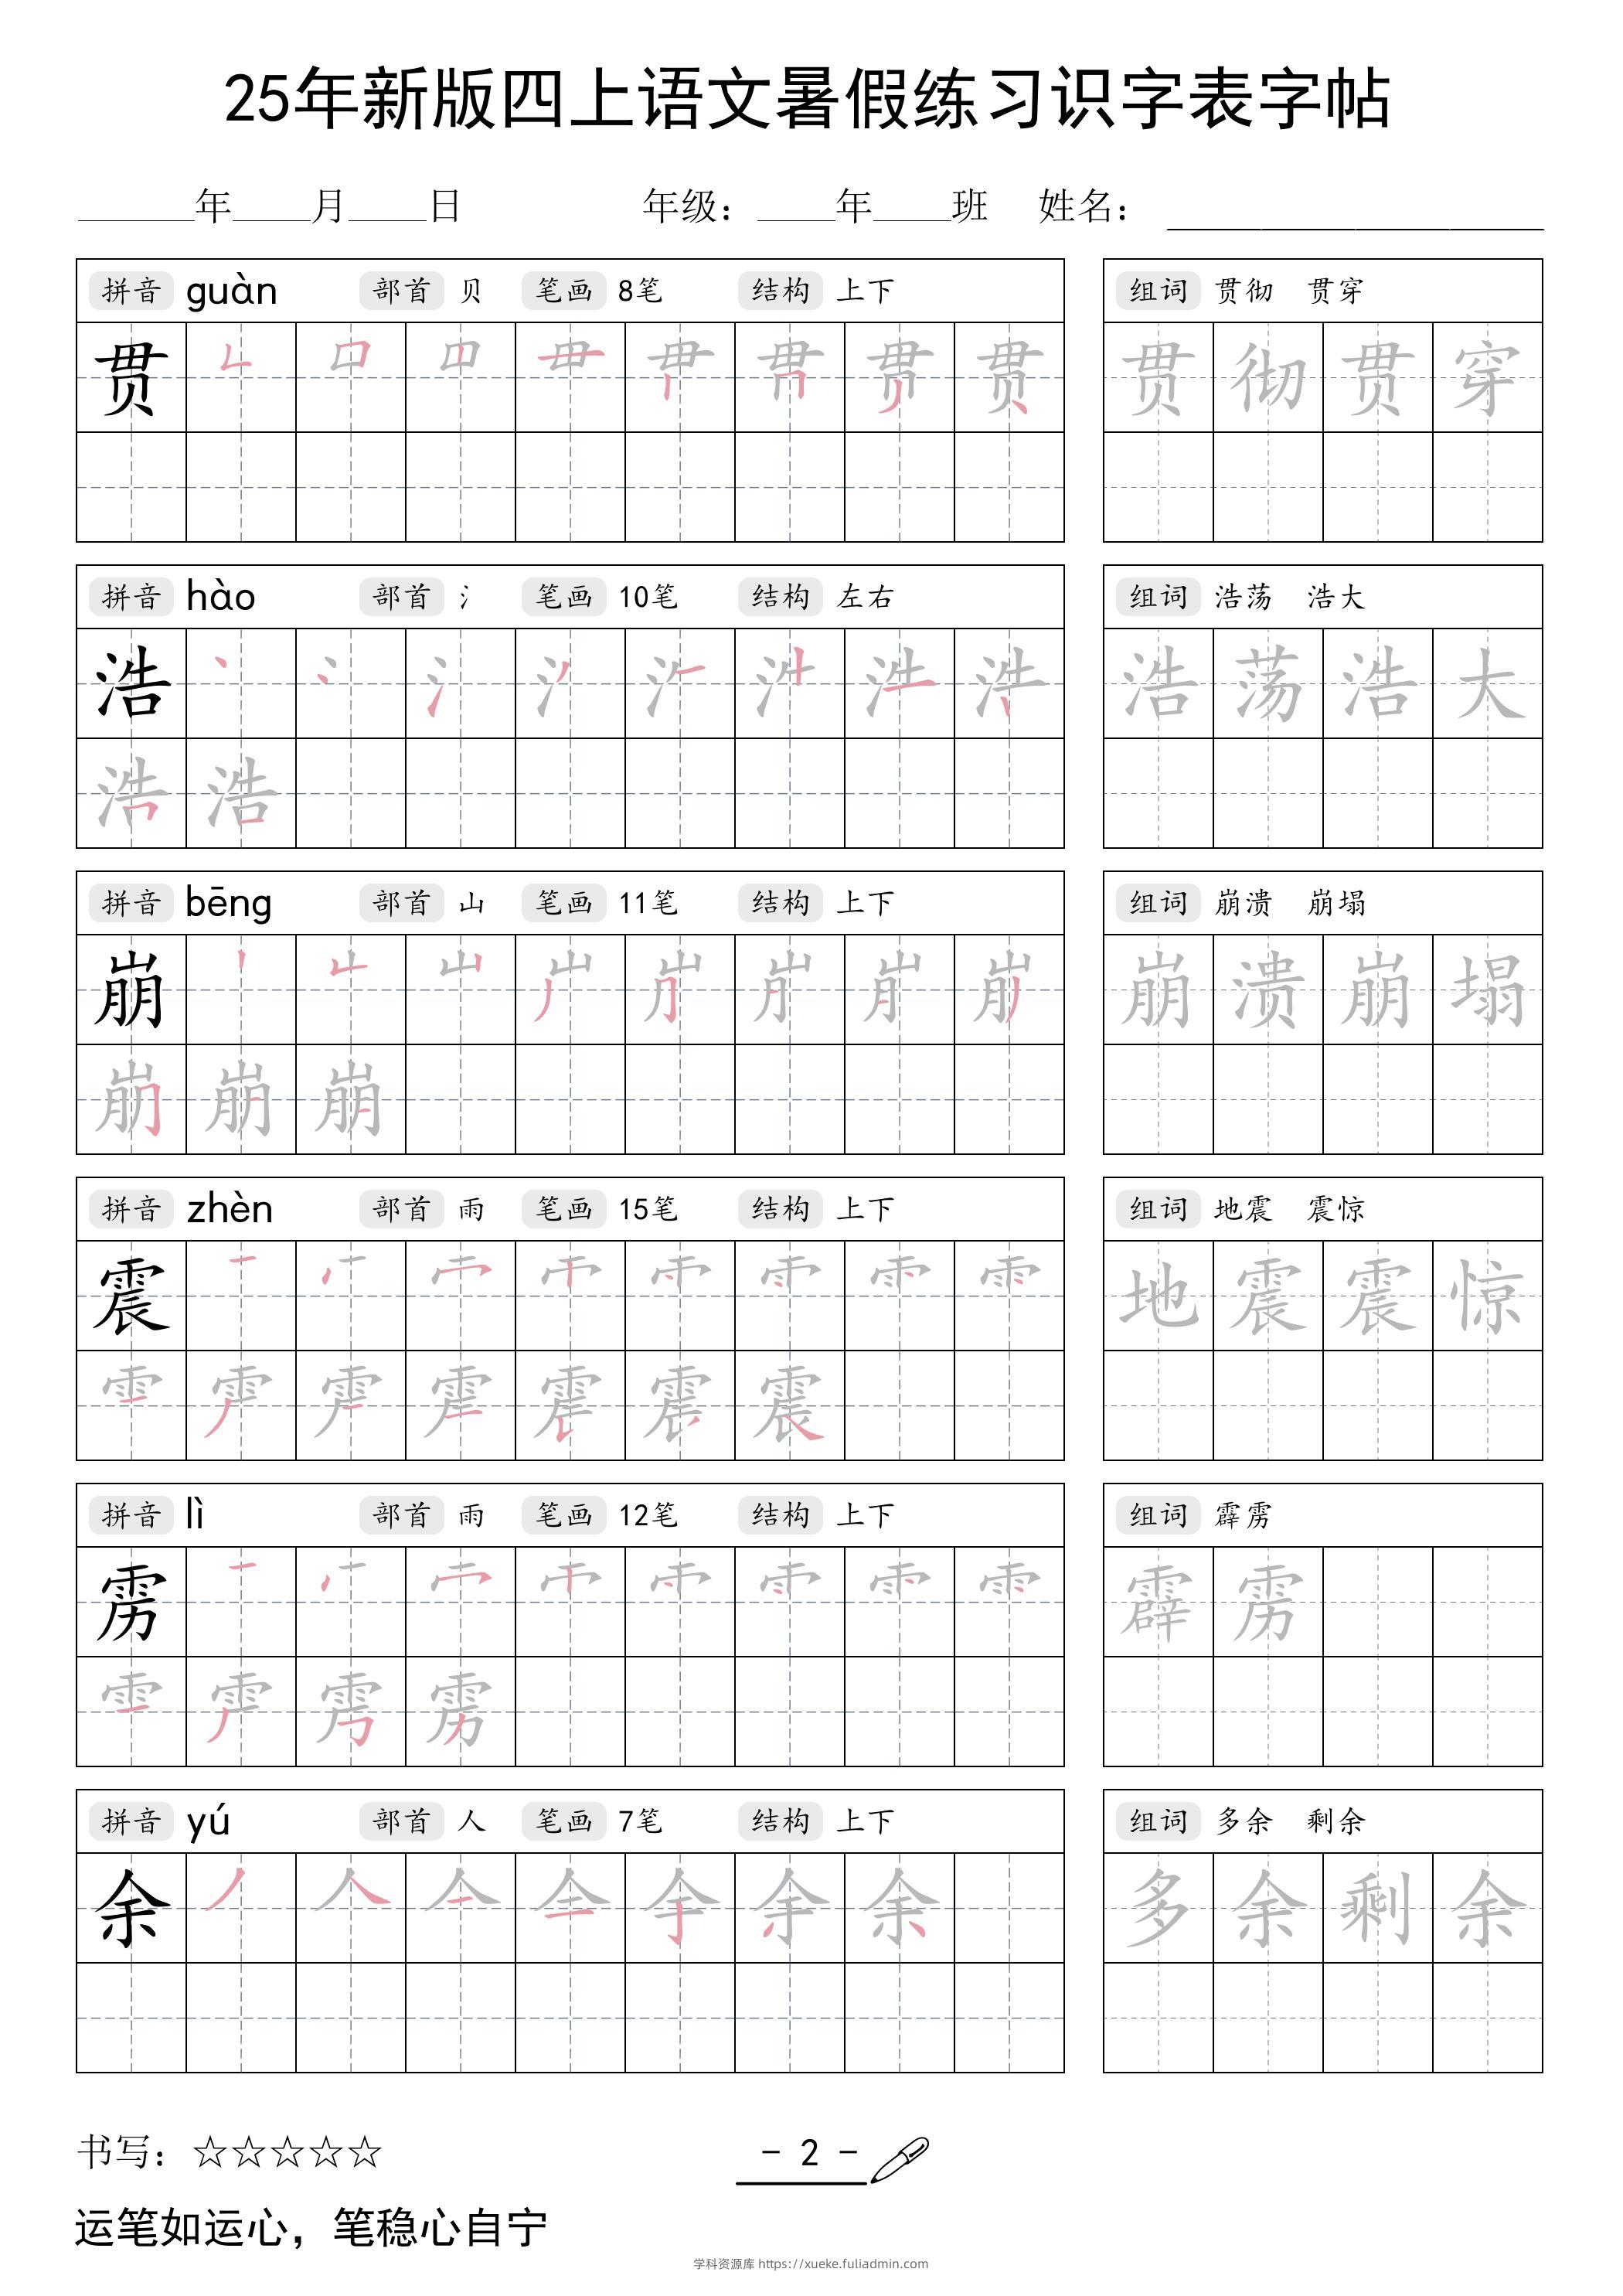 25年新版四上语文暑假练习识字表字帖
______年____月____日 年级：____年____班 姓名：
拼音 guàn 部首 贝 笔画 8笔 结构 上下 组词 贯彻 贯穿
贯 贯 彻 贯 穿
拼音 hào 部首 氵 笔画 10笔 结构 左右 组词 浩荡 浩大
浩 浩 荡 浩 大
浩
拼音 bēng 部首 山 笔画 11笔 结构 上下 组词 崩溃 崩塌
崩 崩 溃 崩 塌
崩
拼音 zhèn 部首 雨 笔画 15笔 结构 上下 组词 地震 震惊
震 地 震 震 惊
震
拼音 lì 部首 雨 笔画 12笔 结构 上下 组词 霹雳
雳 霹 雳
雳
拼音 yú 部首 人 笔画 7笔 结构 上下 组词 多余 剩余
余 余 多 余 剩 余
书写：☆☆☆☆☆
- 2 -
运笔如运心，笔稳心自宁
学科资源库 https://xueke.fuliadmin.com